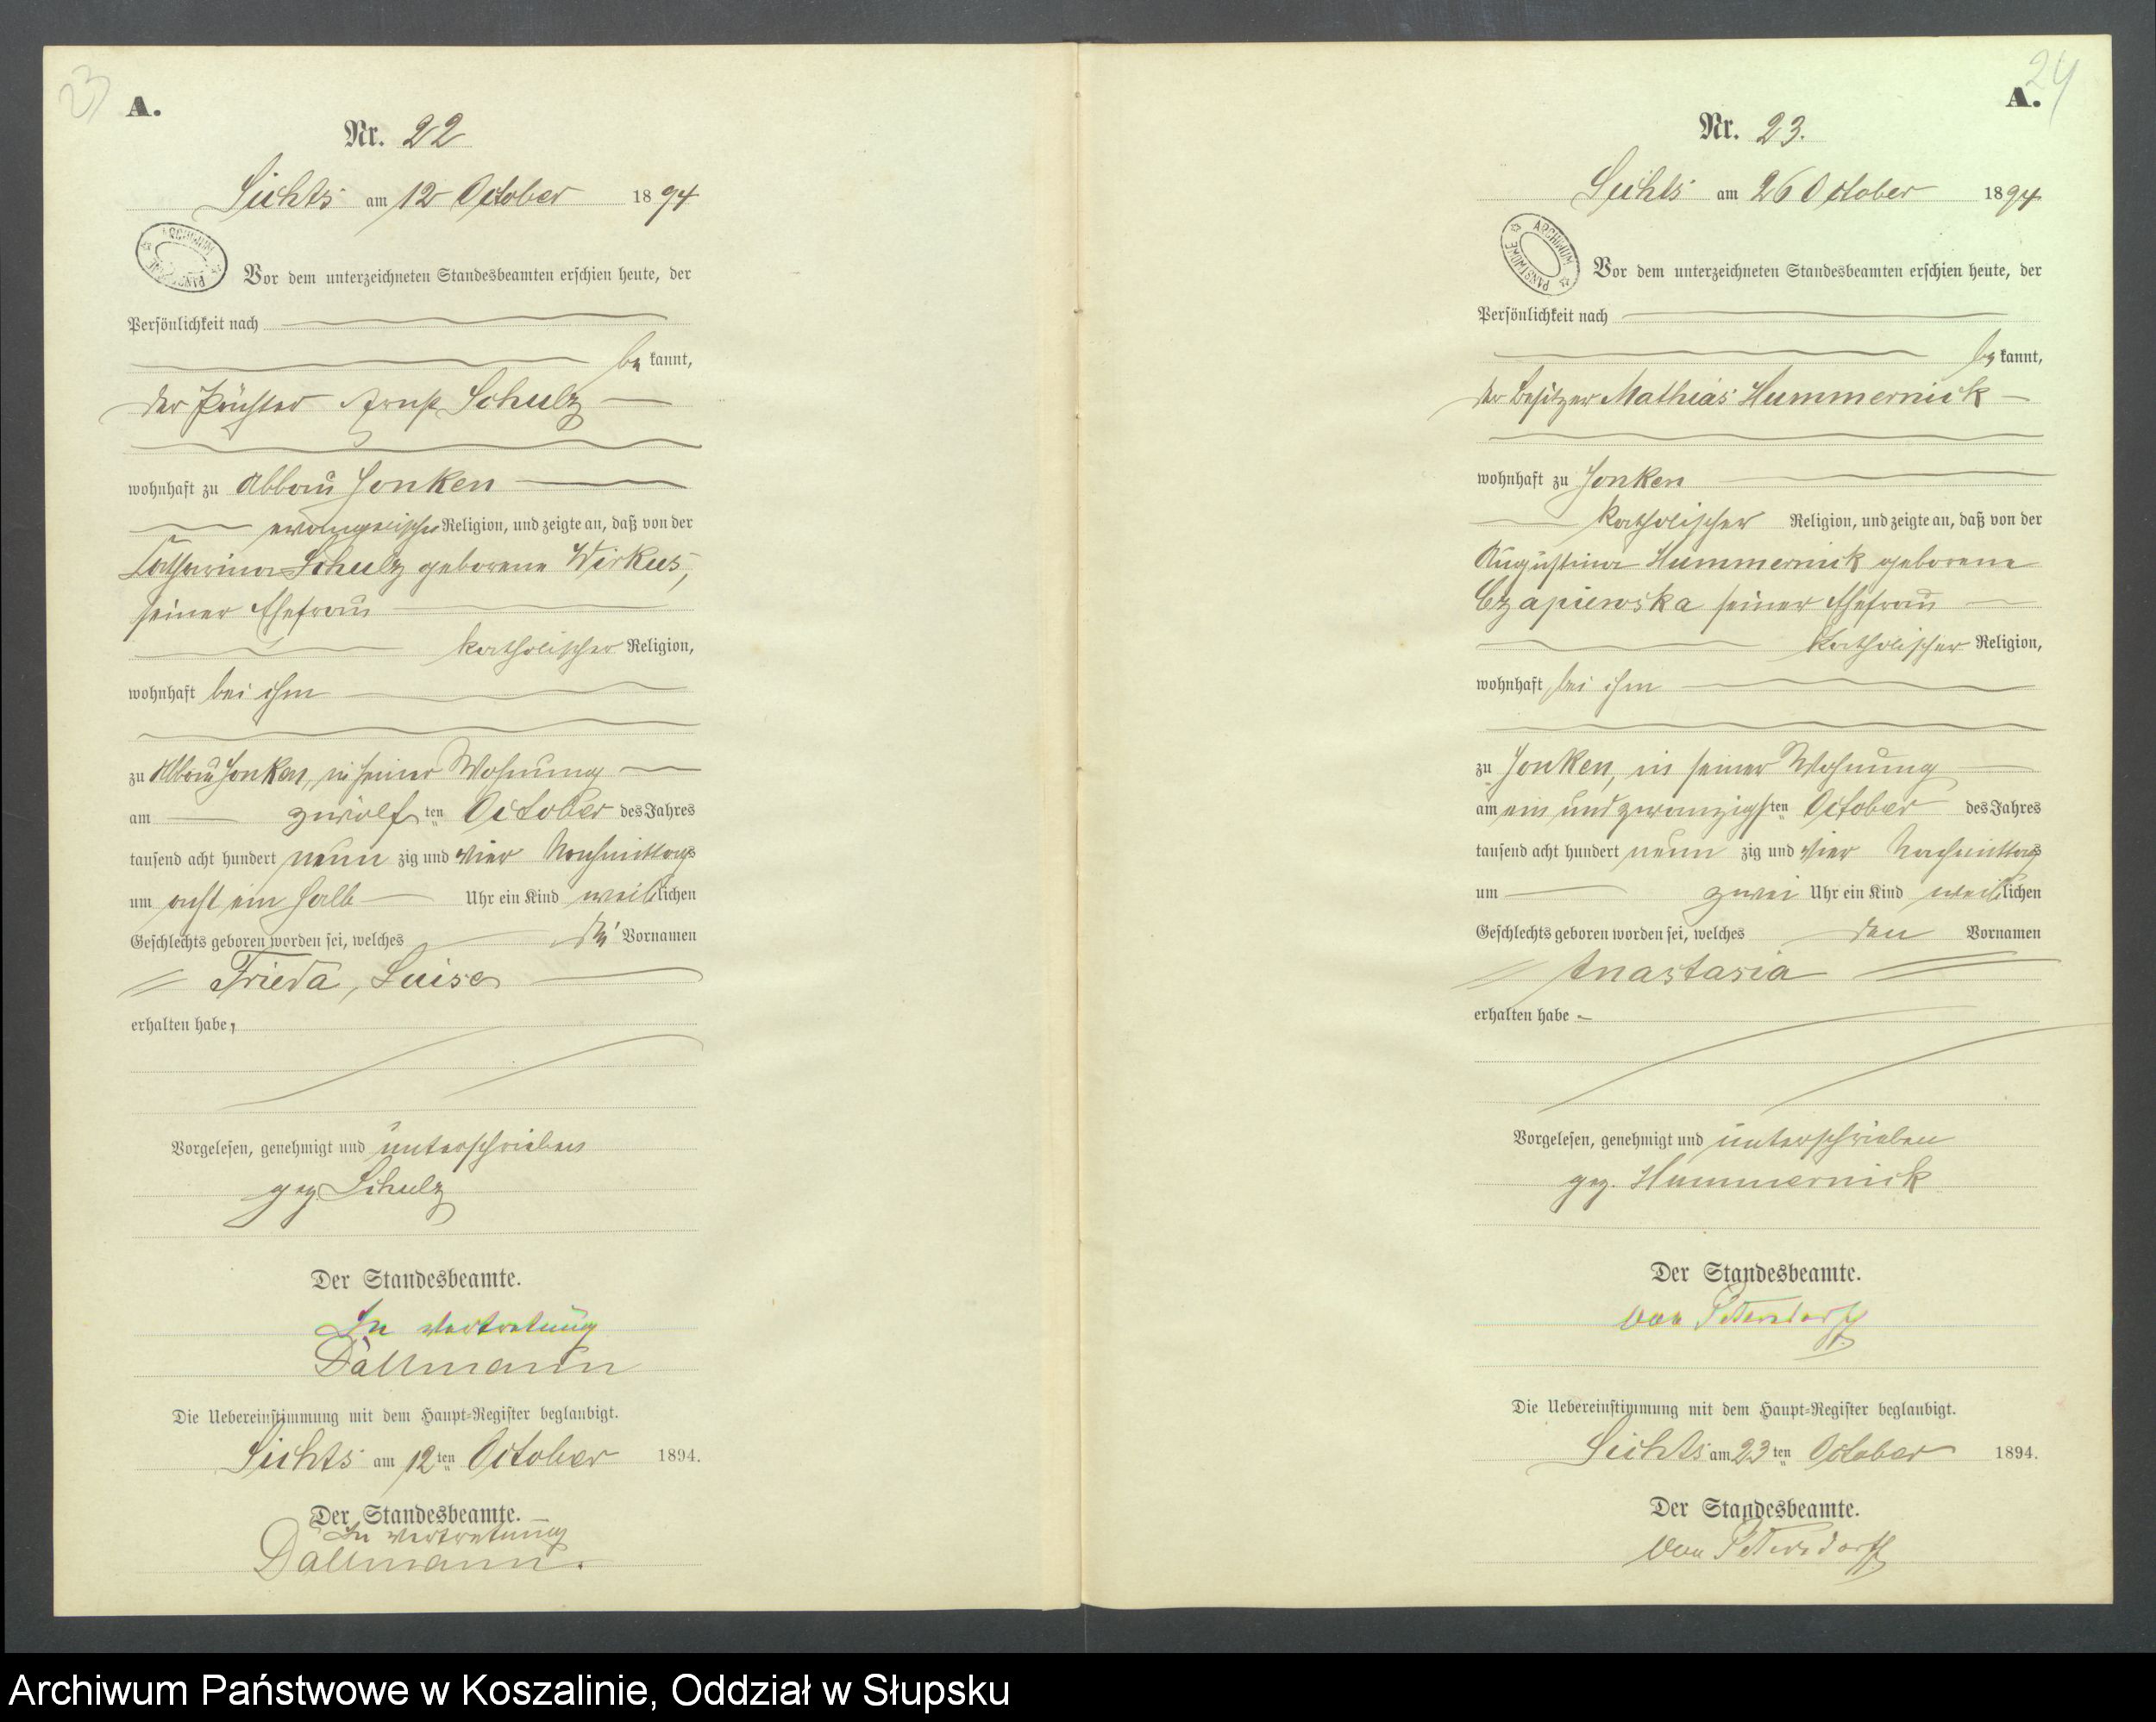 23
A.
Nr. 22
Lichts am 12 October 1894
ARCHIWUM PAŃSTWOWE
Vor dem unterzeichneten Standesbeamten erschien heute, der
Persönlichkeit nach
be kannt,
der Pächter Ernst Schulz
wohnhaft zu Abbau Jonken
evangelischer Religion, und zeigte an, daß von der
Catharina Schulz geborene Wirkus,
seiner Ehefrau
katholischer Religion,
wohnhaft bei ihm
zu Abbau Jonken, in seiner Wohnung
am zwölf ten October des Jahres
tausend acht hundert neun zig und vier Nachmittags
um acht ein halb Uhr ein Kind weib lichen
Geschlechts geboren worden sei, welches die Vornamen
Frieda, Luise
erhalten habe,
Vorgelesen, genehmigt und unterschrieben
gez Schulz
Der Standesbeamte.
In Vertretung
Dallmann
Die Uebereinstimmung mit dem Haupt-Register beglaubigt.
Lichts am 12ten October 1894.
Der Standesbeamte.
In Vertretung
Dallmann.
24
A.
Nr. 23.
Lichts am 26 October 1894
ARCHIWUM PAŃSTWOWE
Vor dem unterzeichneten Standesbeamten erschien heute, der
Persönlichkeit nach
be kannt,
der Besitzer Mathias Hummernick
wohnhaft zu Jonken
katholischer Religion, und zeigte an, daß von der
Augustina Hummernick geborene
Czapiewska seiner Ehefrau
katholischer Religion,
wohnhaft bei ihm
zu Jonken, in seiner Wohnung
am ein und zwanzigsten October des Jahres
tausend acht hundert neun zig und vier Nachmittags
um zwei Uhr ein Kind weib lichen
Geschlechts geboren worden sei, welches den Vornamen
Anastasia
erhalten habe
Vorgelesen, genehmigt und unterschrieben
gez. Hummernick
Der Standesbeamte.
von Petersdorff
Die Uebereinstimmung mit dem Haupt-Register beglaubigt.
Lichts am 23ten October 1894.
Der Standesbeamte.
von Petersdorff
Archiwum Państwowe w Koszalinie, Oddział w Słupsku